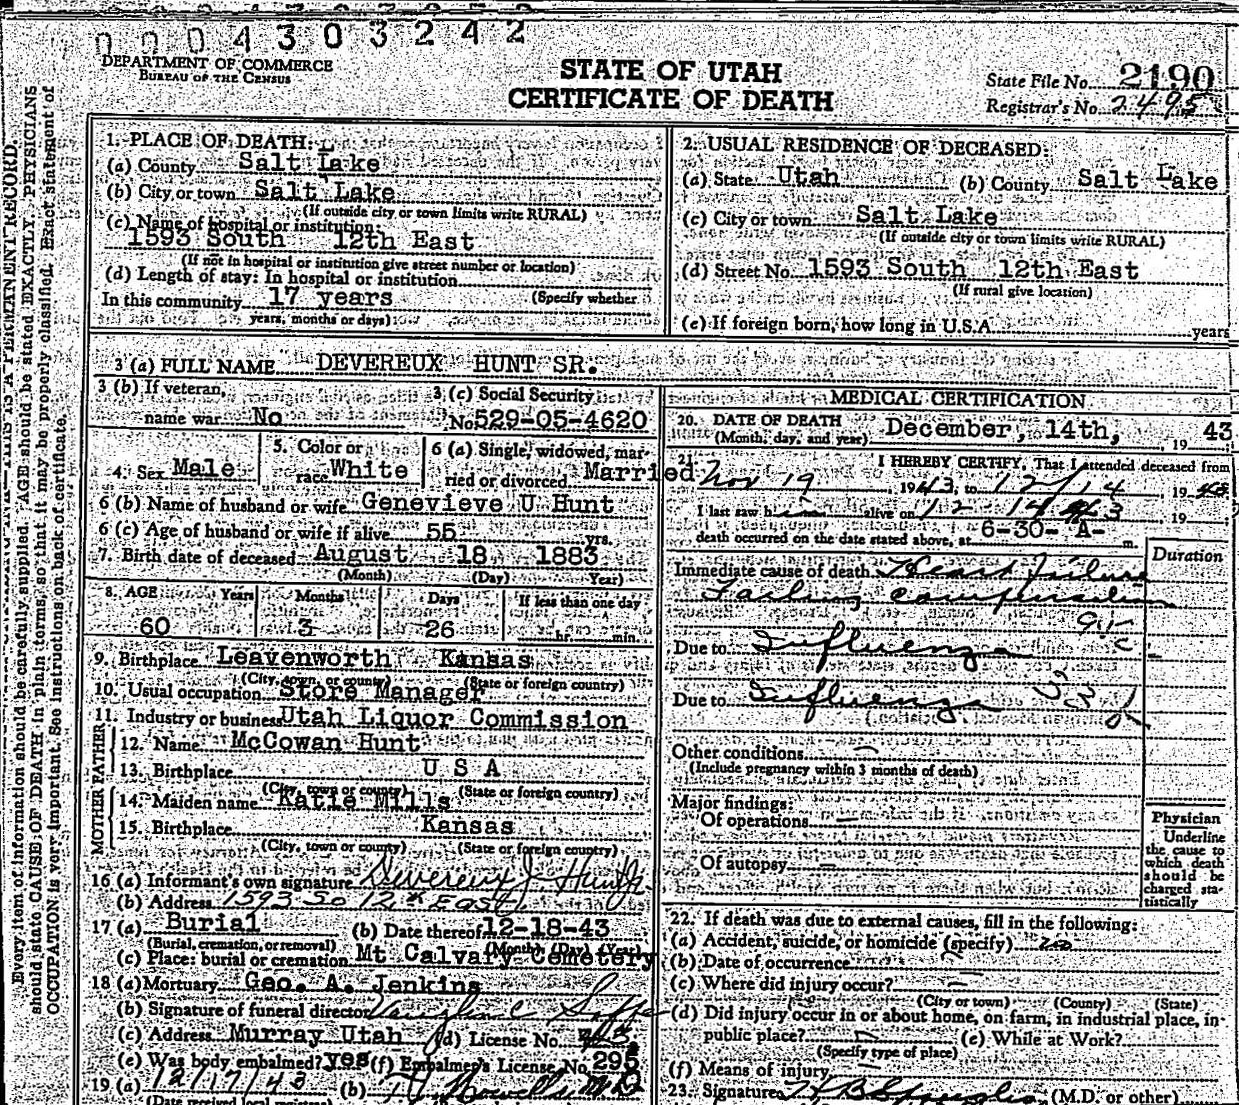 0004303242
DEPARTMENT OF COMMERCE
BUREAU OF THE CENSUS
STATE OF UTAH
CERTIFICATE OF DEATH
State File No. 2190
Registrar's No. 2495
1. PLACE OF DEATH:
(a) County Salt Lake
(b) City or town Salt Lake
(If outside city or town limits write RURAL)
(c) Name of hospital or institution:
1593 South 12th East
(If not in hospital or institution give street number or location)
(d) Length of stay: In hospital or institution
In this community 17 years (Specify whether
years, months or days)
2. USUAL RESIDENCE OF DECEASED:
(a) State Utah (b) County Salt Lake
(c) City or town Salt Lake
(If outside city or town limits write RURAL)
(d) Street No. 1593 South 12th East
(If rural give location)
(e) If foreign born, how long in U.S.A. years
3 (a) FULL NAME DEVEREUX HUNT SR.
3 (b) If veteran, 3 (c) Social Security
name war No No. 529-05-4620
4. Sex Male 5. Color or race White 6 (a) Single, widowed, married or divorced Married
6 (b) Name of husband or wife Genevieve U Hunt
6 (c) Age of husband or wife if alive 55 yrs.
7. Birth date of deceased August 18 1883
(Month) (Day) Year)
8. AGE Years Months Days If less than one day
60 3 26 hr. min.
9. Birthplace Leavenworth Kansas
(City, town, or county) (State or foreign country)
10. Usual occupation Store Manager
11. Industry or business Utah Liquor Commission
FATHER
12. Name McCowan Hunt
13. Birthplace U S A
(City, town or county) (State or foreign country)
MOTHER
14. Maiden name Katie Mills
15. Birthplace Kansas
(City, town or county) (State or foreign country)
16 (a) Informant's own signature Devereux J. Hunt Jr.
(b) Address 1593 So 12th East
17 (a) Burial (b) Date thereof 12-18-43
(Burial, cremation, or removal) (Month) (Day) (Year)
(c) Place: burial or cremation Mt Calvary Cemetery
18 (a) Mortuary Geo. A. Jenkins
(b) Signature of funeral director
(c) Address Murray Utah (d) License No.
(e) Was body embalmed? yes (f) Embalmer's License No. 295
19 (a) 12/17/43 (b)
MEDICAL CERTIFICATION
20. DATE OF DEATH December, 14th, 19 43
(Month, day, and year)
21. I HEREBY CERTIFY, That I attended deceased from
Nov 19, 1943, to 12/14, 19
I last saw him alive on 12 14 43, 19
death occurred on the date stated above, at 6-30- A- m.
Duration
Immediate cause of death Heart failure
Failing
Due to Influenza
Due to Influenza
Other conditions
(Include pregnancy within 3 months of death)
Major findings:
Of operations
Of autopsy
Physician
Underline
the cause to
which death
should be
charged sta-
tistically
22. If death was due to external causes, fill in the following:
(a) Accident, suicide, or homicide (specify) no
(b) Date of occurrence
(c) Where did injury occur?
(City or town) (County) (State)
(d) Did injury occur in or about home, on farm, in industrial place, in-
public place? (e) While at Work?
(Specify type of place)
(f) Means of injury
23. Signature (M.D. or other)
Every item of information should be carefully supplied. AGE should be stated EXACTLY. PHYSICIANS
should state CAUSE OF DEATH in plain terms, so that it may be properly classified. Exact statement of
OCCUPATION is very important. See instructions on back of certificate.
THIS IS A PERMANENT RECORD.